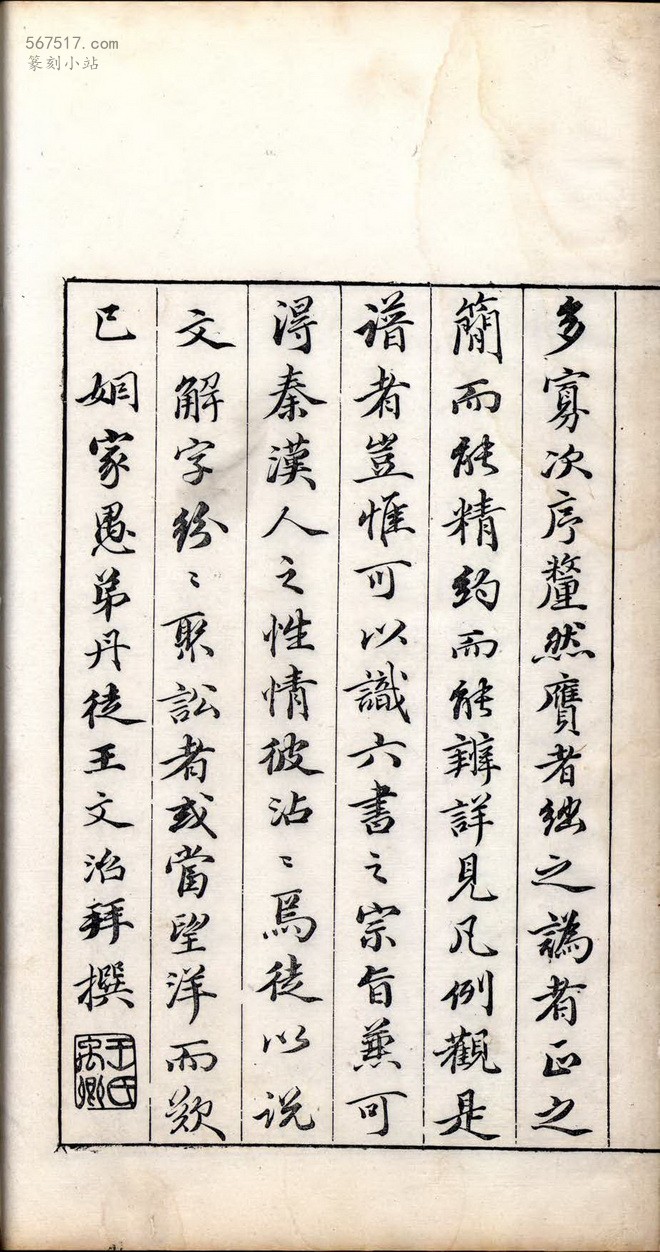 567517.com
篆刻小站
多寡次序釐然贋者绌之譌者正之
簡而能精約而能辨詳見凡例觀是
譜者豈惟可以識六書之宗旨兼可
得秦漢人之性情彼沾〻焉徒以说
文解字紛〻聚訟者或當望洋而歎
已姻家愚弟丹徒王文治拜撰
王氏禹卿